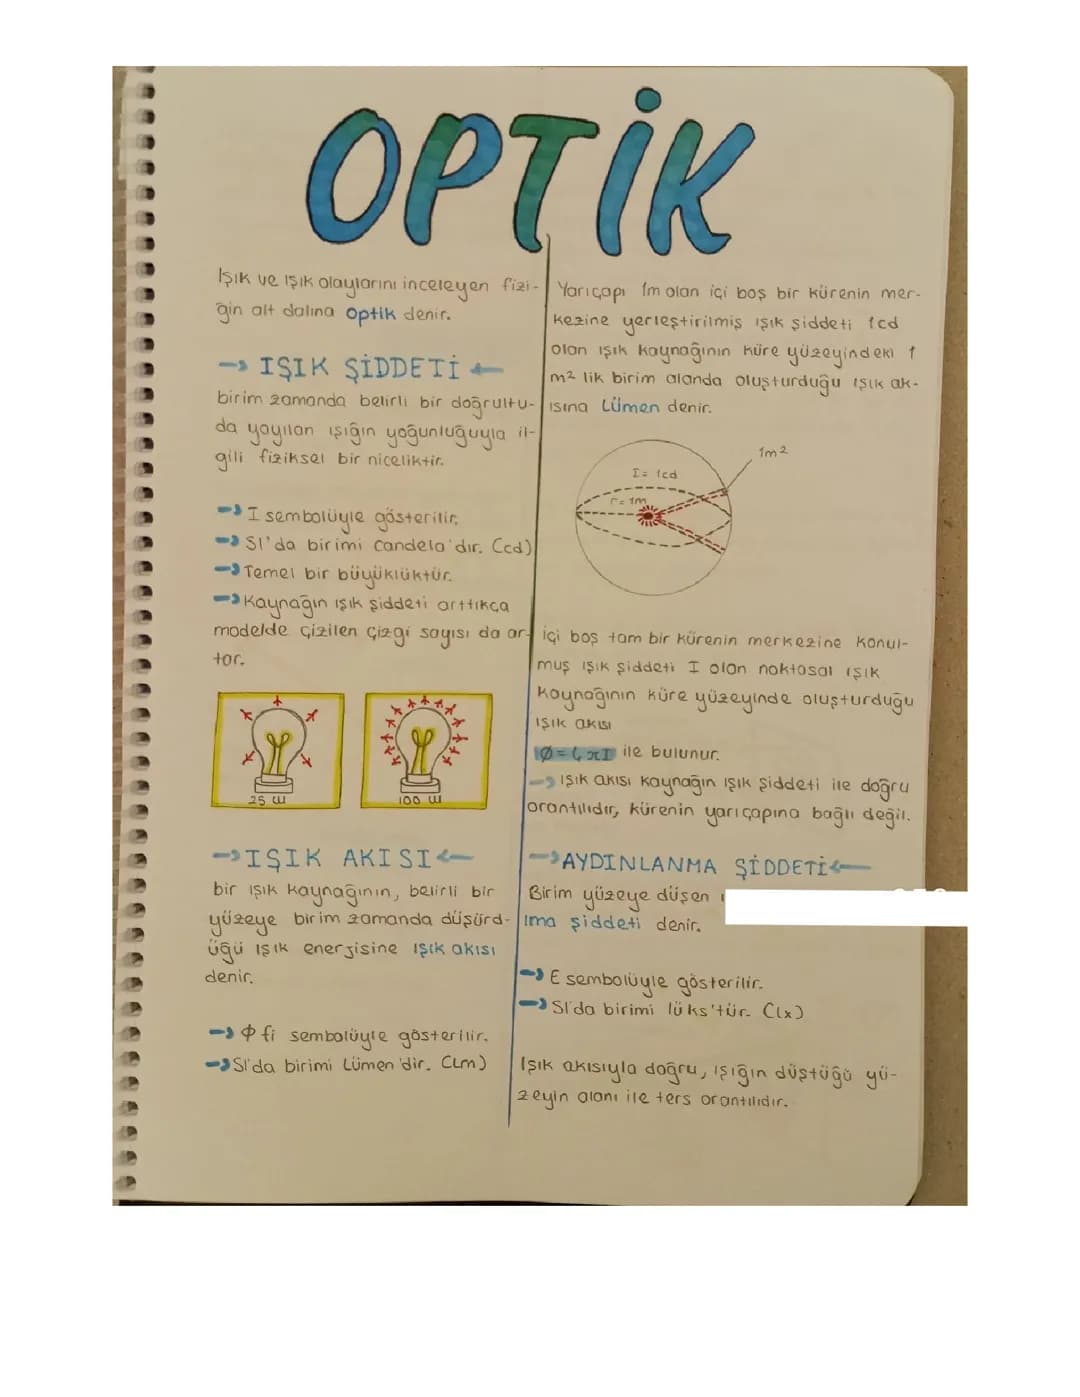 OPTİK
Işık ve ışık olaylarını inceleyen fizi-
ğin alt dalına optik denir.
→ IŞIK ŞİDDETİ ←
birim zamanda belirli bir doğrultu-
da yayılan ışığın yoğunluğuyla il-
gili fiziksel bir niceliktir.
→ I sembolüyle gösterilir.
→ SI'da birimi candela'dır. (cd)
→ Temel bir büyüklüktür.
→ Kaynağın ışık şiddeti arttıkça
modelde çizilen çizgi sayısı da ar-
tar.
25 W
100 W
→ IŞIK AKISI ←
bir ışık kaynağının, belirli bir
yüzeye birim zamanda düşürd-
üğü ışık enerjisine ışık akısı
denir.
→ Φ fi sembolüyle gösterilir.
→ SI'da birimi Lümen'dir. (Lm)
Yarıçapı 1m olan içi boş bir kürenin mer-
kezine yerleştirilmiş ışık şiddeti 1cd
olan ışık kaynağının küre yüzeyindeki 1
m² lik birim alanda oluşturduğu ışık ak-
ısına Lümen denir.
1m²
I = 1cd
r = 1m
içi boş tam bir kürenin merkezine konul-
muş ışık şiddeti I olan noktasal ışık
kaynağının küre yüzeyinde oluşturduğu
ışık akısı
Ø = 4πI ile bulunur.
→ Işık akısı kaynağın ışık şiddeti ile doğru
orantılıdır, kürenin yarıçapına bağlı değil.
→ AYDINLANMA ŞİDDETİ ←
Birim yüzeye düşen
ıma şiddeti denir.
→ E sembolüyle gösterilir.
→ SI'da birimi lüks'tür. (lx)
Işık akısıyla doğru, ışığın düştüğü yü-
zeyin alanı ile ters orantılıdır.